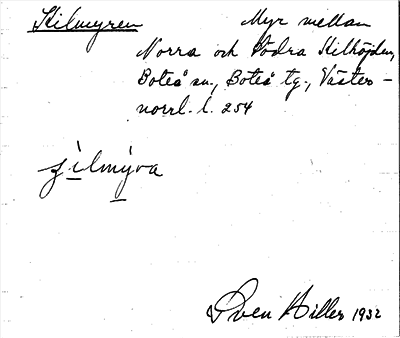 Kilmyren Myr mellan
Norra och Södra Kilhöjden,
Boteå sn., Boteå tg., Väster-
norrl. l. 254
Sven Hiller 1932